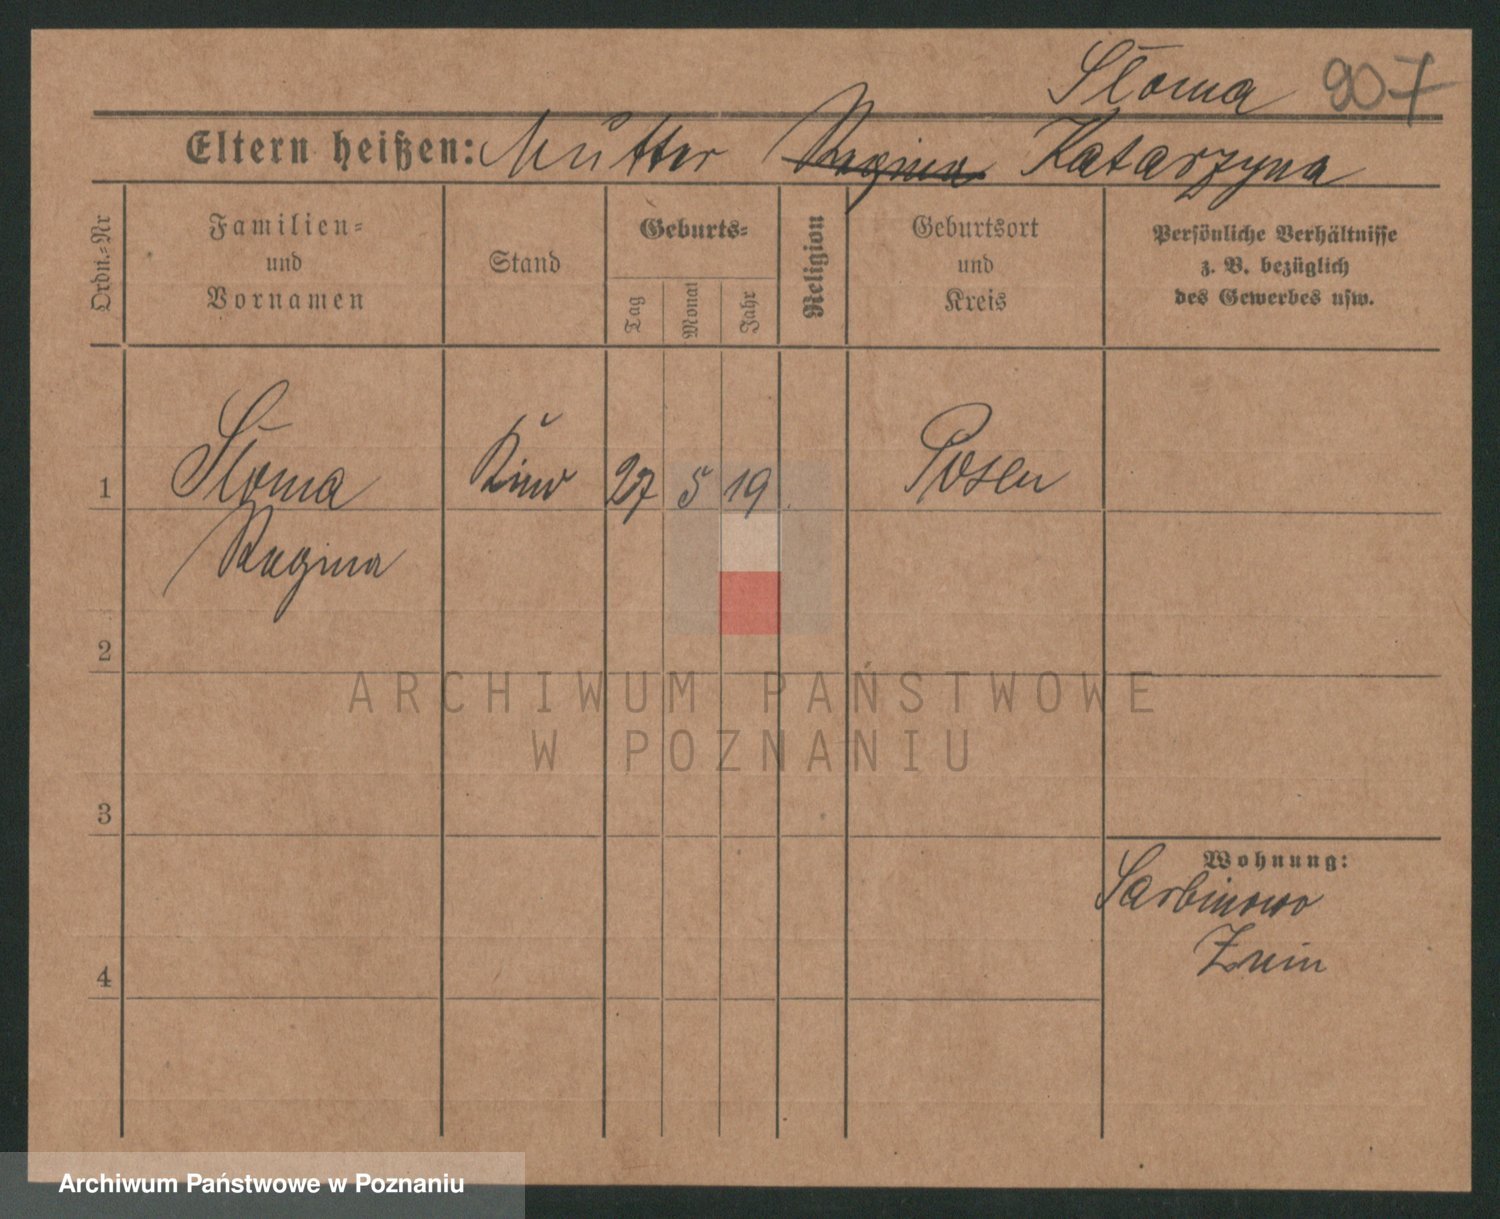 Słoma 907
Eltern heißen: Mutter Regina Katarzyna
Ordn.-Nr
Familien-
und
Vornamen
Stand
Geburts-
Tag
Monat
Jahr
Religion
Geburtsort
und
Kreis
Persönliche Verhältnisse
z. B. bezüglich
des Gewerbes usw.
1 Słoma 27 5 19 Posen
Regina
2
ARCHIWUM PAŃSTWOWE
W POZNANIU
3
Wohnung:
Sarbinowo
Znin
4
Archiwum Państwowe w Poznaniu